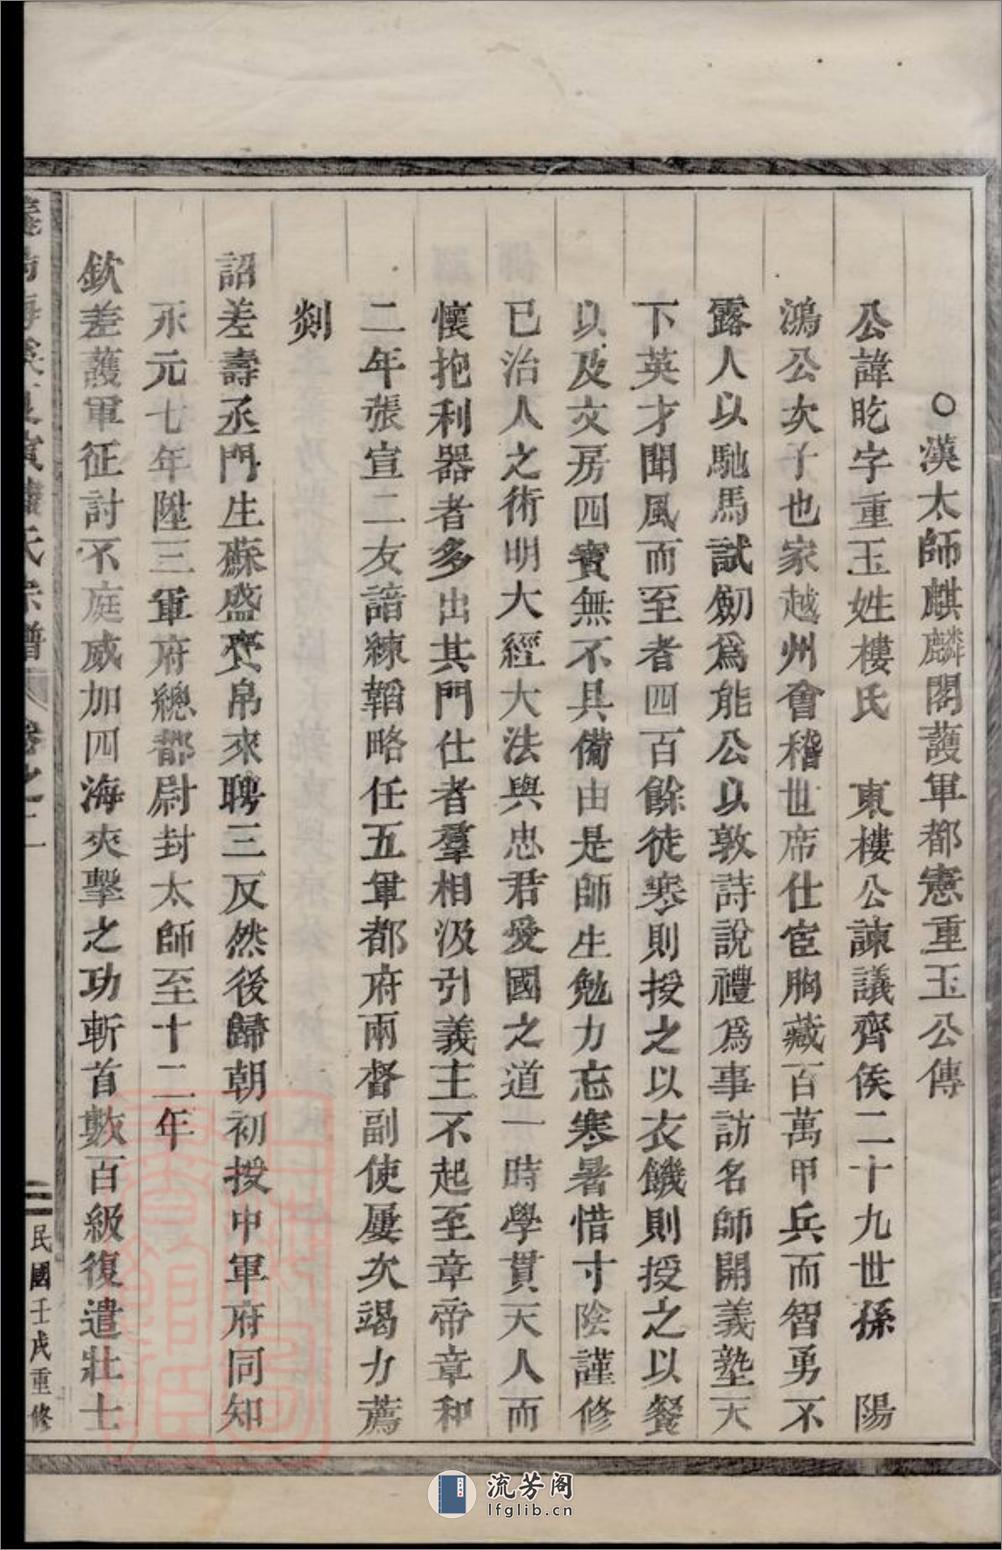 ○漢太師麒麟閣護軍都憲重玉公傳
公諱盵字重玉姓樓氏　東樓公諫議齊侯二十九世孫　陽
鴻公次子也家越州會稽世席仕宦胸藏百萬甲兵而智勇不
露人以馳馬試劒爲能公以敦詩說禮爲事訪名師開義塾天
下英才聞風而至者四百餘徒寒則授之以衣饑則授之以餐
以及文房四寶無不具備由是師生勉力忘寒暑惜寸陰謹修
已治人之術明大經大法與忠君愛國之道一時學貫天人而
懷抱利器者多出其門仕者羣相汲引義主不起至章帝章和
二年張宣二友諳練韜略任五軍都府兩督副使屢次竭力薦
剡
詔差壽丞門生蘇盛賫帛來聘三反然後歸朝初授中軍府同知
永元七年陞三軍府總都尉封太師至十二年
欽差護軍征討不庭威加四海夾擊之功斬首數百級復遣壯士
氏宗譜　卷之二
民國壬戌重修
流芳阁
lfglib.cn